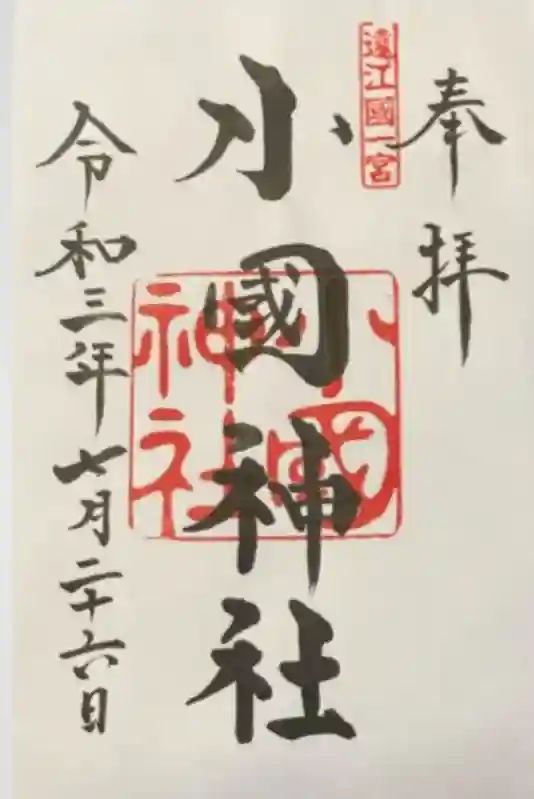 奉拝
遠江國一宮
小國神社
小國
神社
令和三年七月二十六日